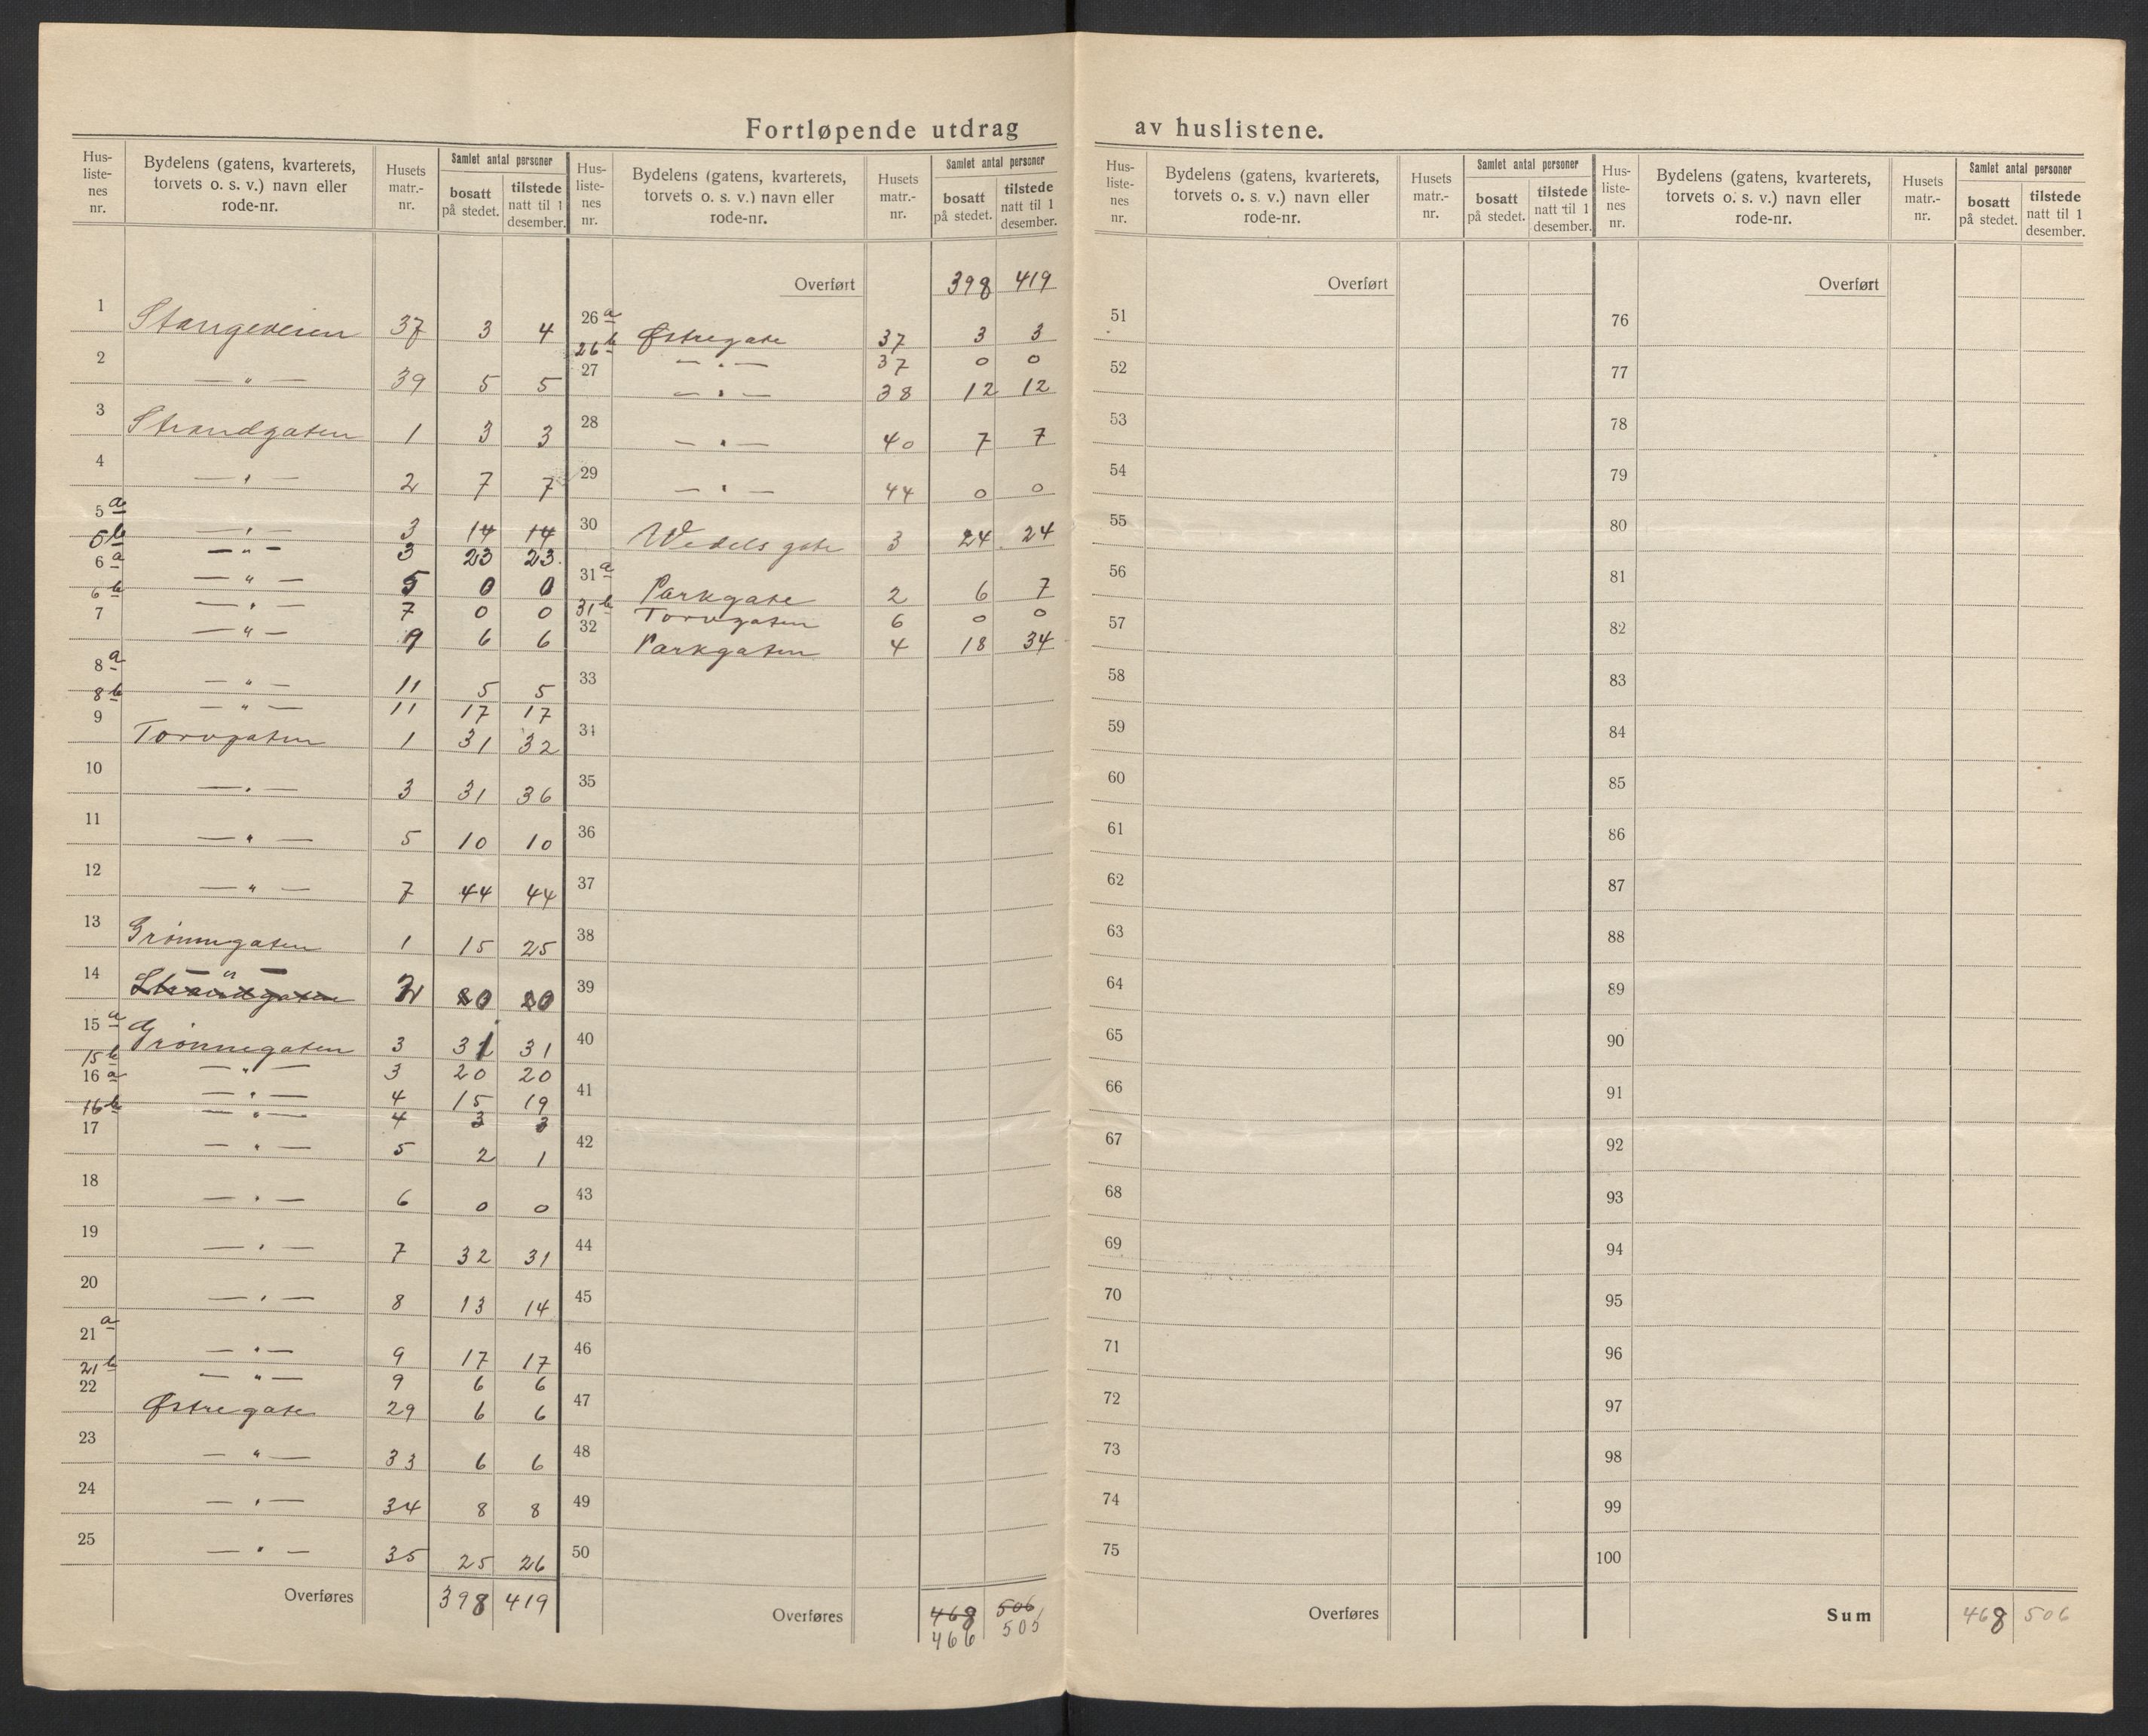 Fortløpende utdrag av huslistene.
Hus-listenes nr. | Bydelens (gatens, kvarterets, torvets o. s. v.) navn eller rode-nr. | Husets matr.-nr. | Samlet antal personer bosatt på stedet. | tilstede natt til 1 desember.
1 Stangeveien 37 3 4
2 — " — 39 5 5
3 Strandgaten 1 3 3
4 — " — 2 7 7
5 a — " — 3 14 14
5 b — " — 3 23 23
6 a — " — 5 0 0
6 b — " — 7 0 0
7 — " — 9 6 6
8 a — " — 11 5 5
8 b — " — 11 17 17
9 Torvgaten 1 31 32
10 — " — 3 31 36
11 — " — 5 10 10
12 — " — 7 44 44
13 Grønnegaten 1 15 25
14 — " — Strandgaten 2
15 a Grønnegaten 3 31 31
15 b — " — 3 20 20
16 a — " — 4 15 19
16 b — " — 4 3 3
17 — " — 5 2 1
18 — " — 6 0 0
19 — " — 7 32 31
20 — " — 8 13 14
21 a — " — 9 17 17
21 b — " — 9 6 6
22 Østregate 29 6 6
23 — " — 33 6 6
24 — " — 34 8 8
25 — " — 35 25 26
Overføres 398 419
Hus-listenes nr. | Bydelens (gatens, kvarterets, torvets o. s. v.) navn eller rode-nr. | Husets matr.-nr. | Samlet antal personer bosatt på stedet. | tilstede natt til 1 desember.
Overført 398 419
26 a Østregate 37 3 3
26 b — " — 37 0 0
27 — " — 38 12 12
28 — " — 40 7 7
29 — " — 44 0 0
30 Wedels gate 3 24 24
31 a Parkgate 2 6 7
31 b Torvgaten 6 0 0
32 Parkgaten 4 18 34
33
34
35
36
37
38
39
40
41
42
43
44
45
46
47
48
49
50
Overføres 468 506
466 505
Hus-listenes nr. | Bydelens (gatens, kvarterets, torvets o. s. v.) navn eller rode-nr. | Husets matr.-nr. | Samlet antal personer bosatt på stedet. | tilstede natt til 1 desember.
Overført
51
52
53
54
55
56
57
58
59
60
61
62
63
64
65
66
67
68
69
70
71
72
73
74
75
Overføres
Hus-listenes nr. | Bydelens (gatens, kvarterets, torvets o. s. v.) navn eller rode-nr. | Husets matr.-nr. | Samlet antal personer bosatt på stedet. | tilstede natt til 1 desember.
Overført
76
77
78
79
80
81
82
83
84
85
86
87
88
89
90
91
92
93
94
95
96
97
98
99
100
Sum 468 506